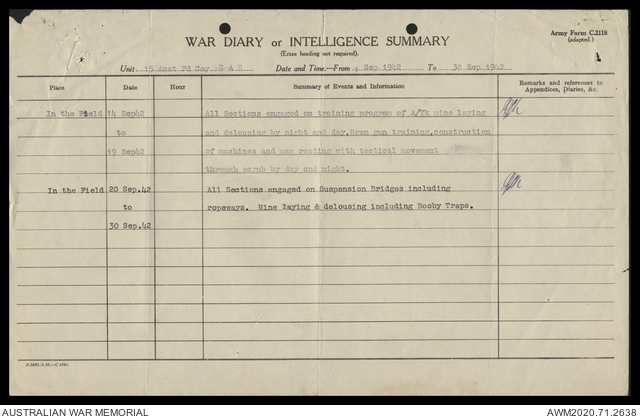 Army Form C.2118
(adapted.)
WAR DIARY or INTELLIGENCE SUMMARY
(Erase heading not required).
Unit 15 Aust Fd Coy R A E Date and Time—From 4 Sep 1942 To 30 Sep 1942
Place Date Hour Summary of Events and Information Remarks and references to
Appendices, Diaries, &c.
In the Field 14 Sep42 All Sections engaged on training program of A/Tk mine laying
to and delousing by night and day, Bren gun training, construction
19 Sep42 of machines and map reading with tactical movement
through scrub by day and night.
In the Field 20 Sep.42 All Sections engaged on Suspension Bridges including
to ropeways. Mine laying & delousing including Booby Traps.
30 Sep.42
AUSTRALIAN WAR MEMORIAL AWM2020.71.2638